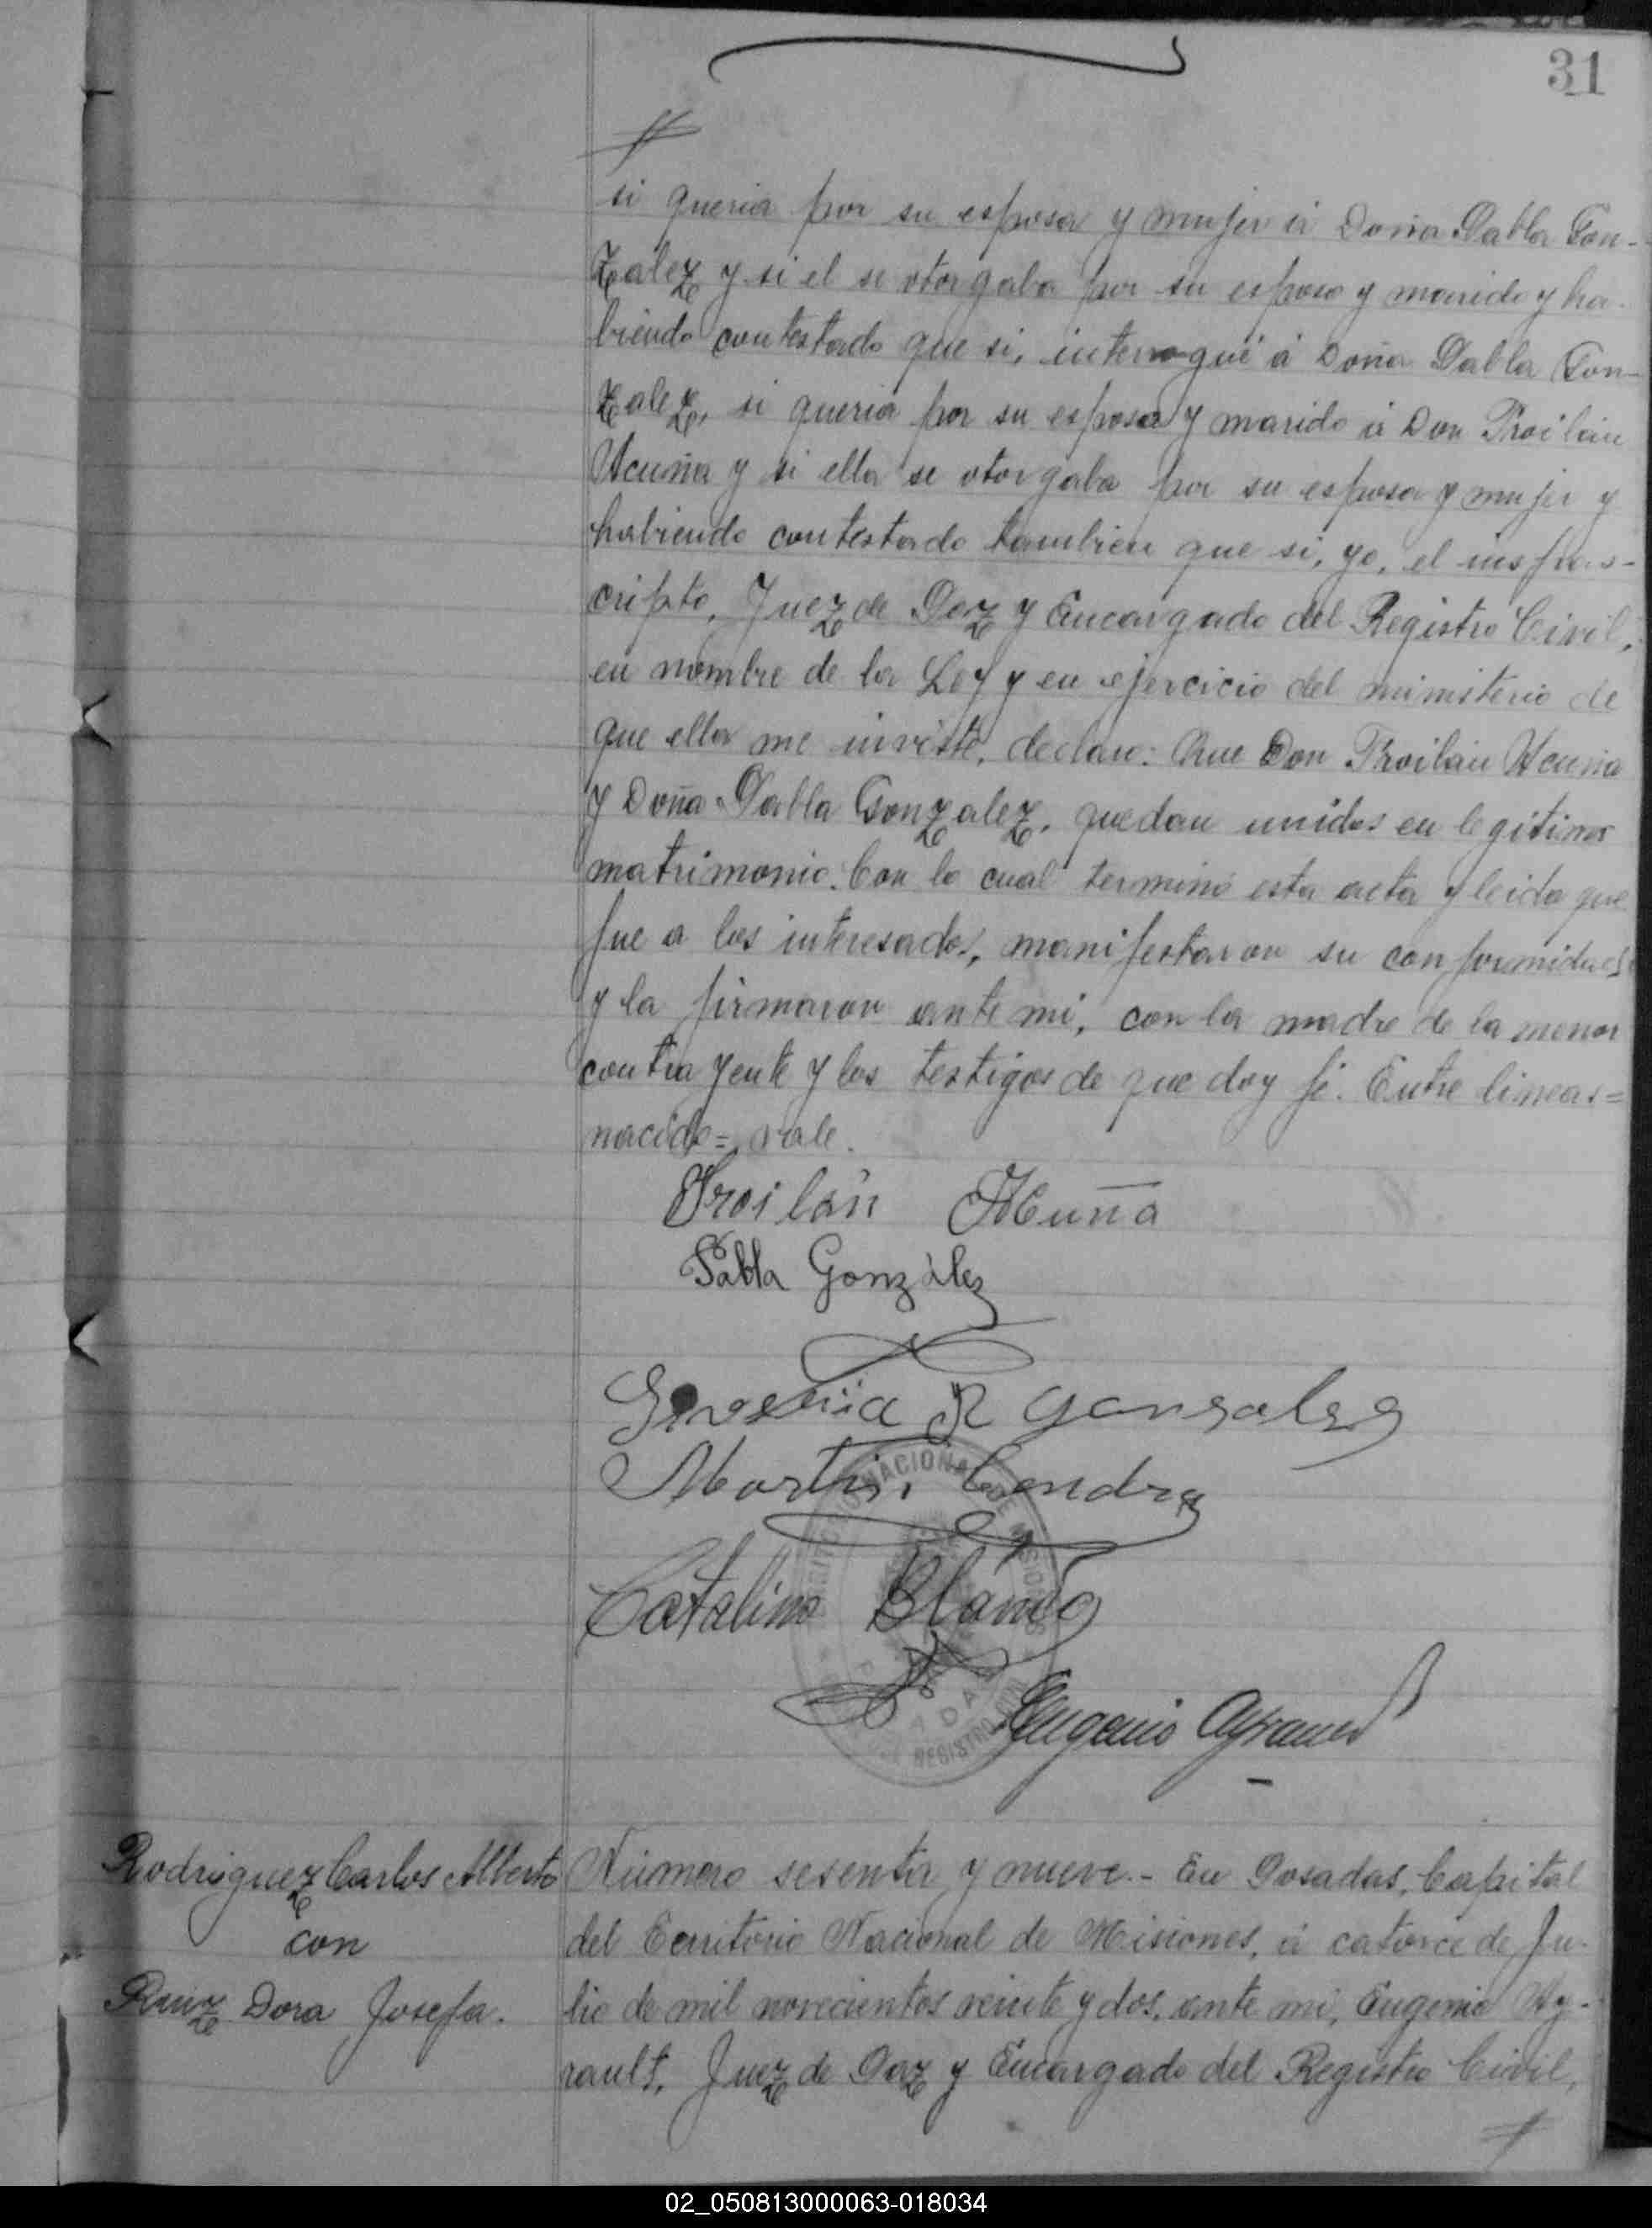 31
si queria por su esposa y mujer á Doña Pabla Gon-
zalez y si el se otorgaba por su esposo y marido y ha-
biendo contestado que si, interrogué á Doña Pabla Gon-
zalez, si queria por su esposo y marido á Don Troilán
Acuña y si ella se otorgaba por su esposa y mujer y
habiendo contestado tambien que si, yo, el infras-
cripto, Juez de Paz y Encargado del Registro Civil,
en nombre de la Ley y en ejercicio del ministerio de
que ella me inviste, declaro: Que Don Troilán Acuña
y Doña Pabla Gonzalez, quedan unidos en legitimo
matrimonio. Con lo cual terminó esta acta y leida que
fue a los interesados, manifestaron su conformidad
y la firmaron ante mi, con la madre de la menor
contrayente y los testigos de que doy fé. Entre lineas=
nacido= vale.
Troilán Acuña
Pabla Gonzàlez
R Gonsales
Martin
Catalino Blanco
Eugenio Ayrault
NACIONAL DE MISIONES
POSADAS
REGISTRO CIVIL
Rodriguez Carlos Alberto
con
Ruiz Dora Josefa.
Número sesenta y nueve.- En Posadas, Capital
del Territorio Nacional de Misiones, á catorce de Ju-
lio de mil novecientos veinte y dos, ante mi, Eugenio Ay-
rault, Juez de Paz y Encargado del Registro Civil,
02_050813000063-018034